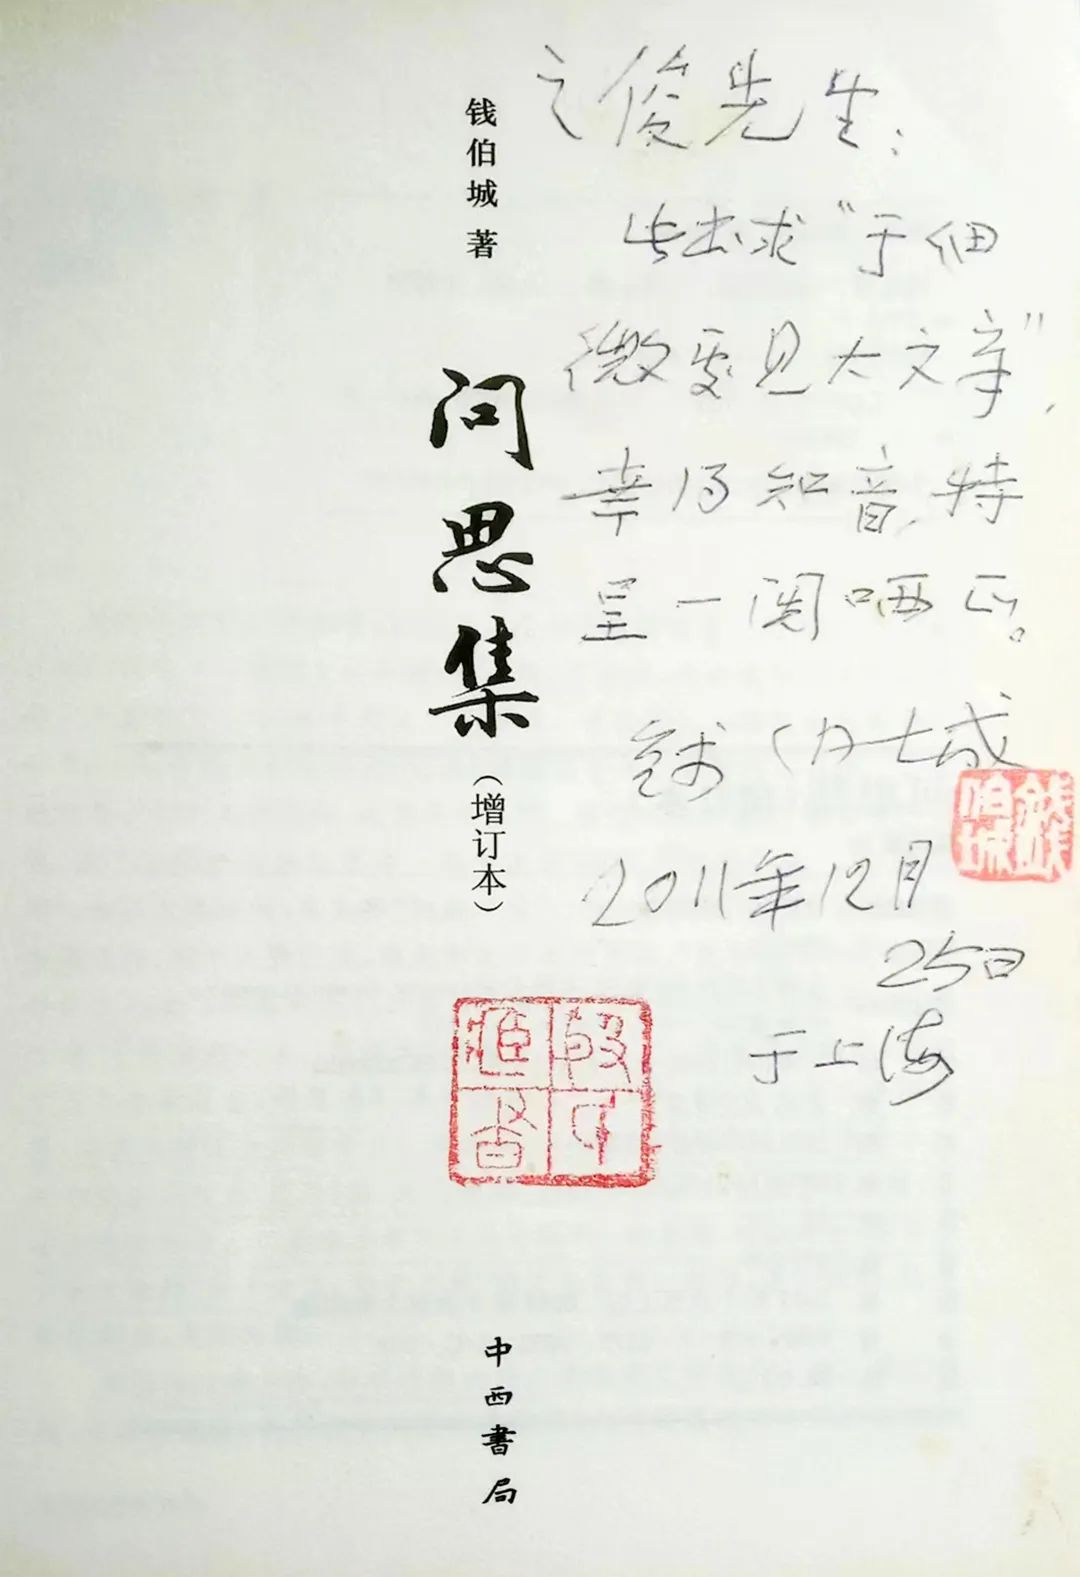 钱伯城 著
问思集
（增订本）
中西書局
之俊先生：
此书求“于细
微处见大文章”，
幸得知音，特
呈一阅哂正。
钱伯城
2011年12月
25日
于上海
錢伯城